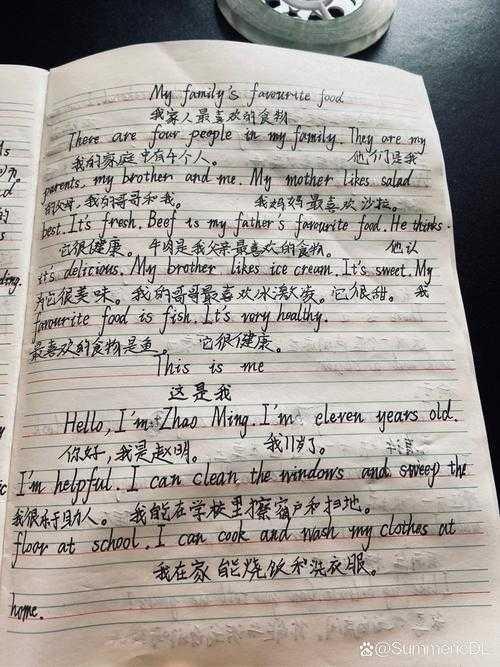 My family's favourite food
我家人最喜欢的食物
There are four people in my family. They are my
我的家庭中有4个人。 他们是我
parents, my brother and me. My mother likes salad
的父母,我的哥哥和我。 我妈妈最喜欢沙拉。
best. It's fresh. Beef is my father's favourite food. He thinks
它很健康。 牛肉是我父亲最喜欢的食物。 他认
it's delicious. My brother likes ice cream. It's sweet. My
为它很美味。我的哥哥最喜欢冰激凌。它很甜。 我
favourite food is fish. It's very healthy.
最喜欢的食物是鱼。 它很健康。
This is me
这是我
Hello, I'm Zhao Ming. I'm eleven years old.
你好,我是赵明。 我11岁了。
I'm helpful. I can clean the windows and sweep the
我很乐于助人。 我能在学校里擦窗户和扫地。
floor at school. I can cook and wash my clothes at
我在家能烧饭和洗衣服。
home.
@SummericDL